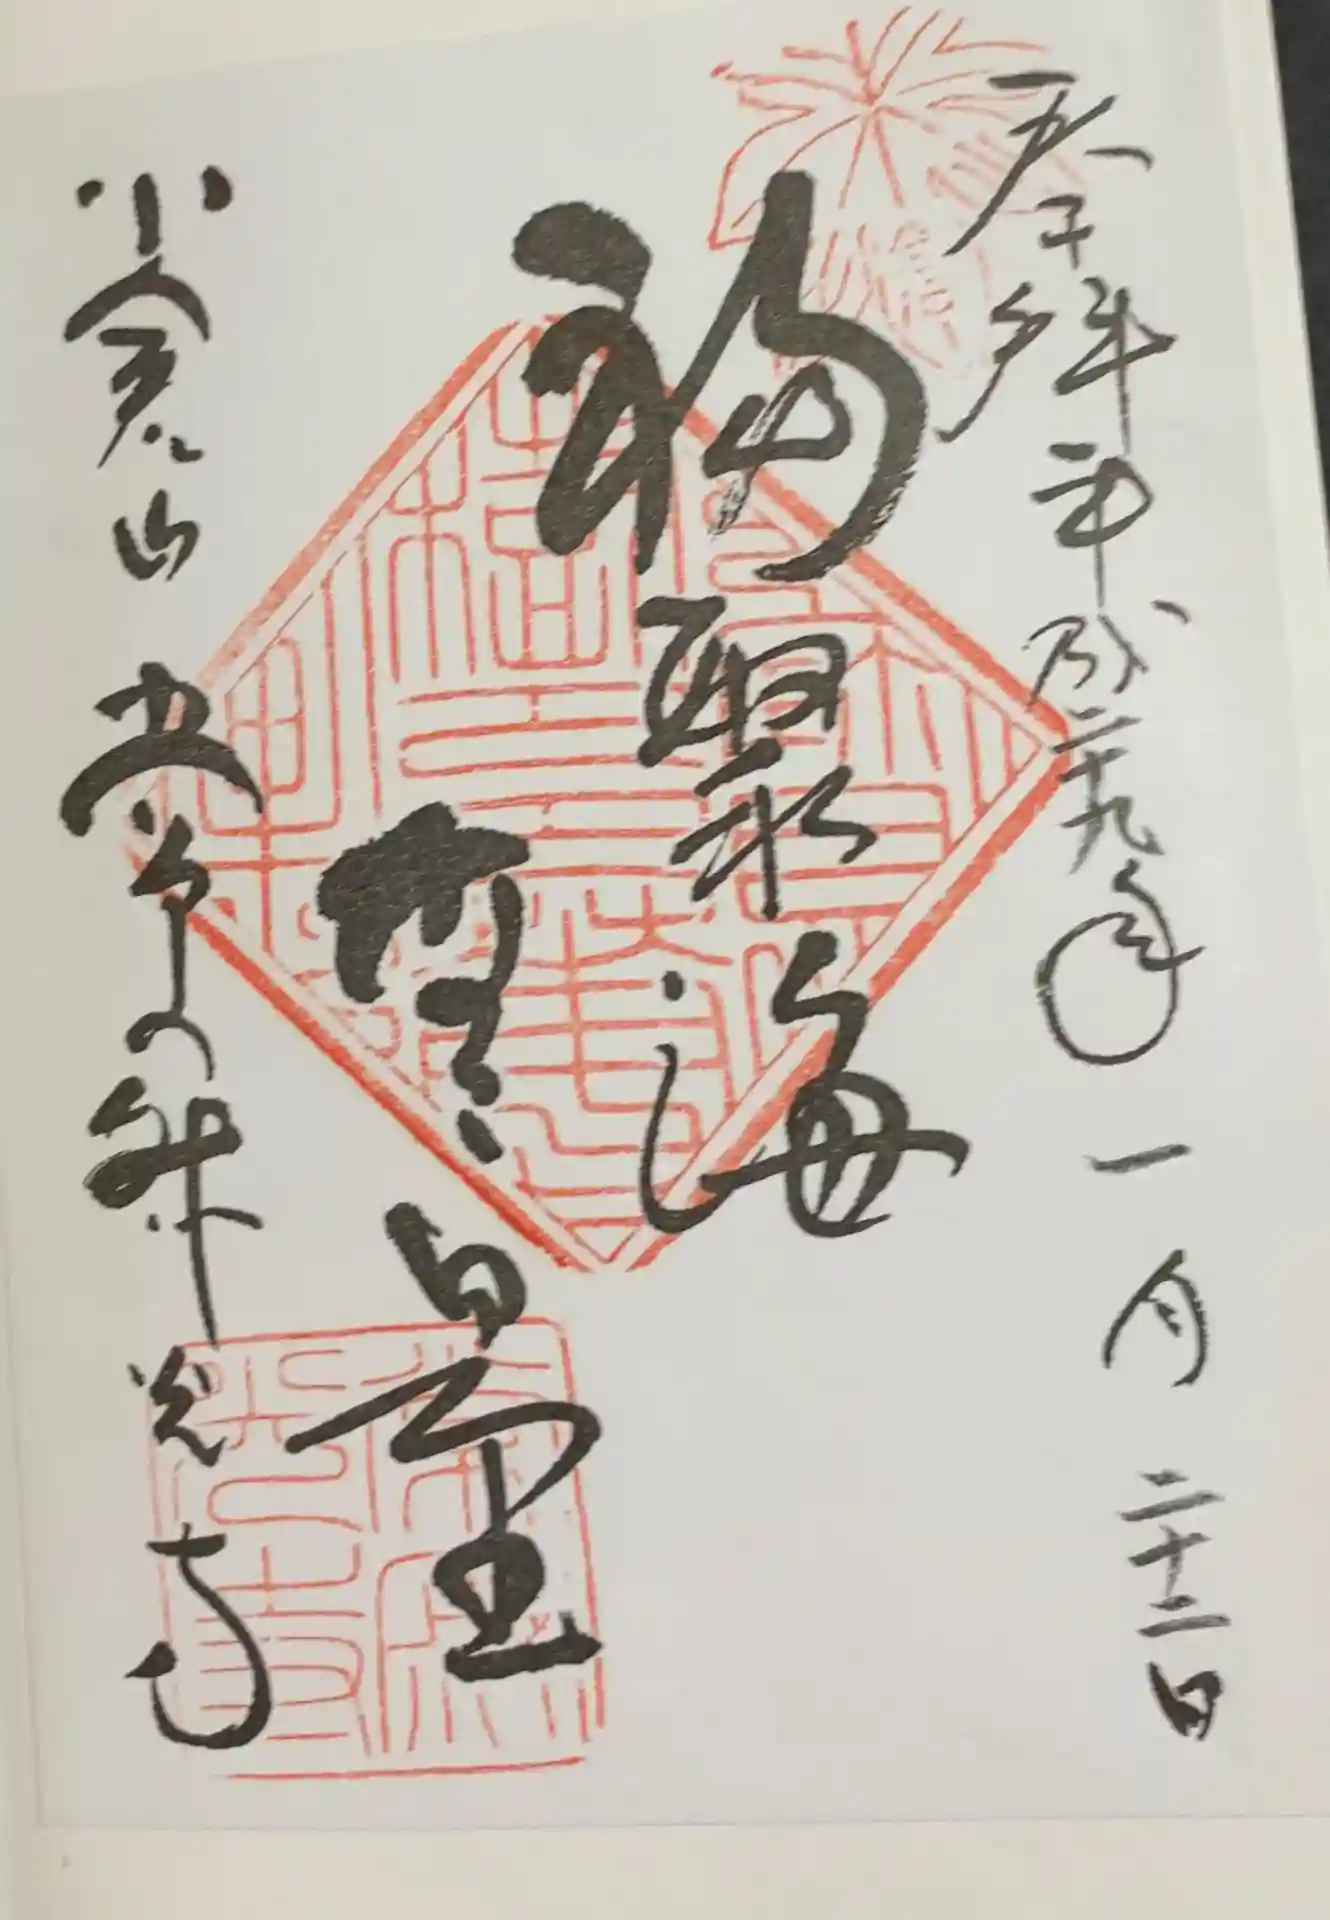 奉拝 平成二十九年一月二十二日
福聚海
無量
小倉山 常寂光寺